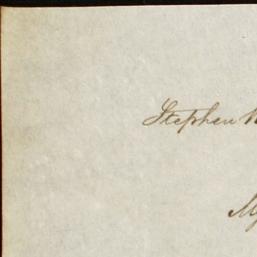 Stephen
My